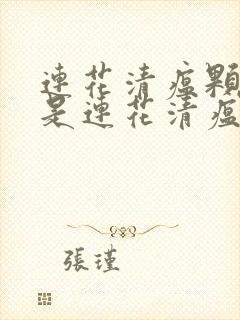 連花清瘟顆
是連花清瘟
張瑾